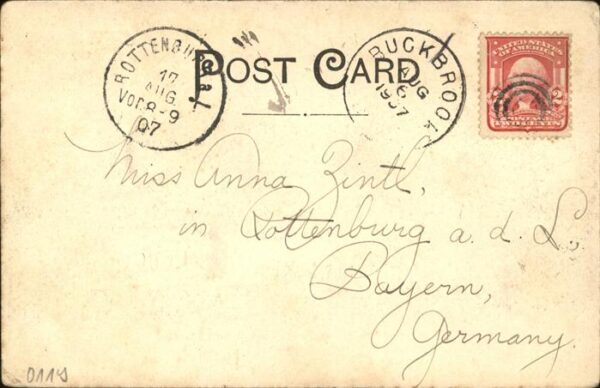 ROTTENBU
17
AUG.
Vor 8-9
07
POST CARD
RUCKBROOK
AUG
6
1907
UNITED STATES
OF AMERICA
2 2
POSTAGE
TWO CENTS
Miss Anna Zintl,
in Rottenburg a. d. L.
Bayern,
Germany.